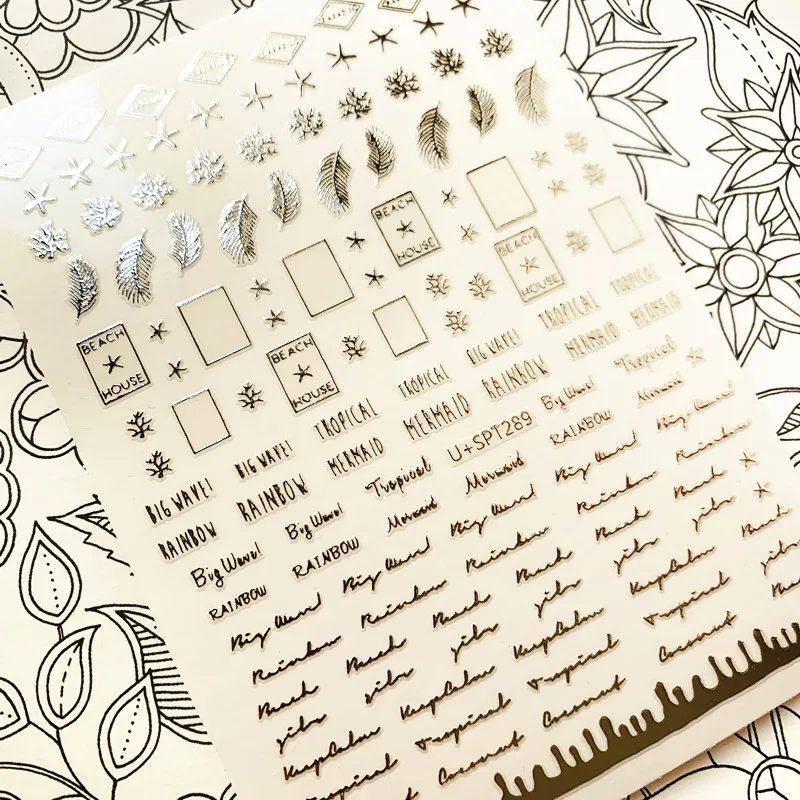 BEACH
HOUSE
BEACH
HOUSE
BEACH
HOUSE
BEACH
HOUSE
BIG WAVE! BIG WAVE! TROPICAL TROPICAL BIG WAVE! TROPICAL TROPICAL
RAINBOW RAINBOW MERMAID MERMAID RAINBOW MERMAID MERMAID
Big Wave! Big Wave! Tropical U+SPT289 Big Wave! Tropical
RAINBOW RAINBOW Mermaid Mermaid RAINBOW Mermaid
Big Wave! Big Wave! Big Wave! Big Wave! Big Wave!
Rainbow Rainbow Rainbow Rainbow Rainbow
Beach Beach Beach Beach Beach Beach
KeepCalm KeepCalm KeepCalm KeepCalm
Tropical Tropical Tropical Tropical
Coconut Coconut Coconut